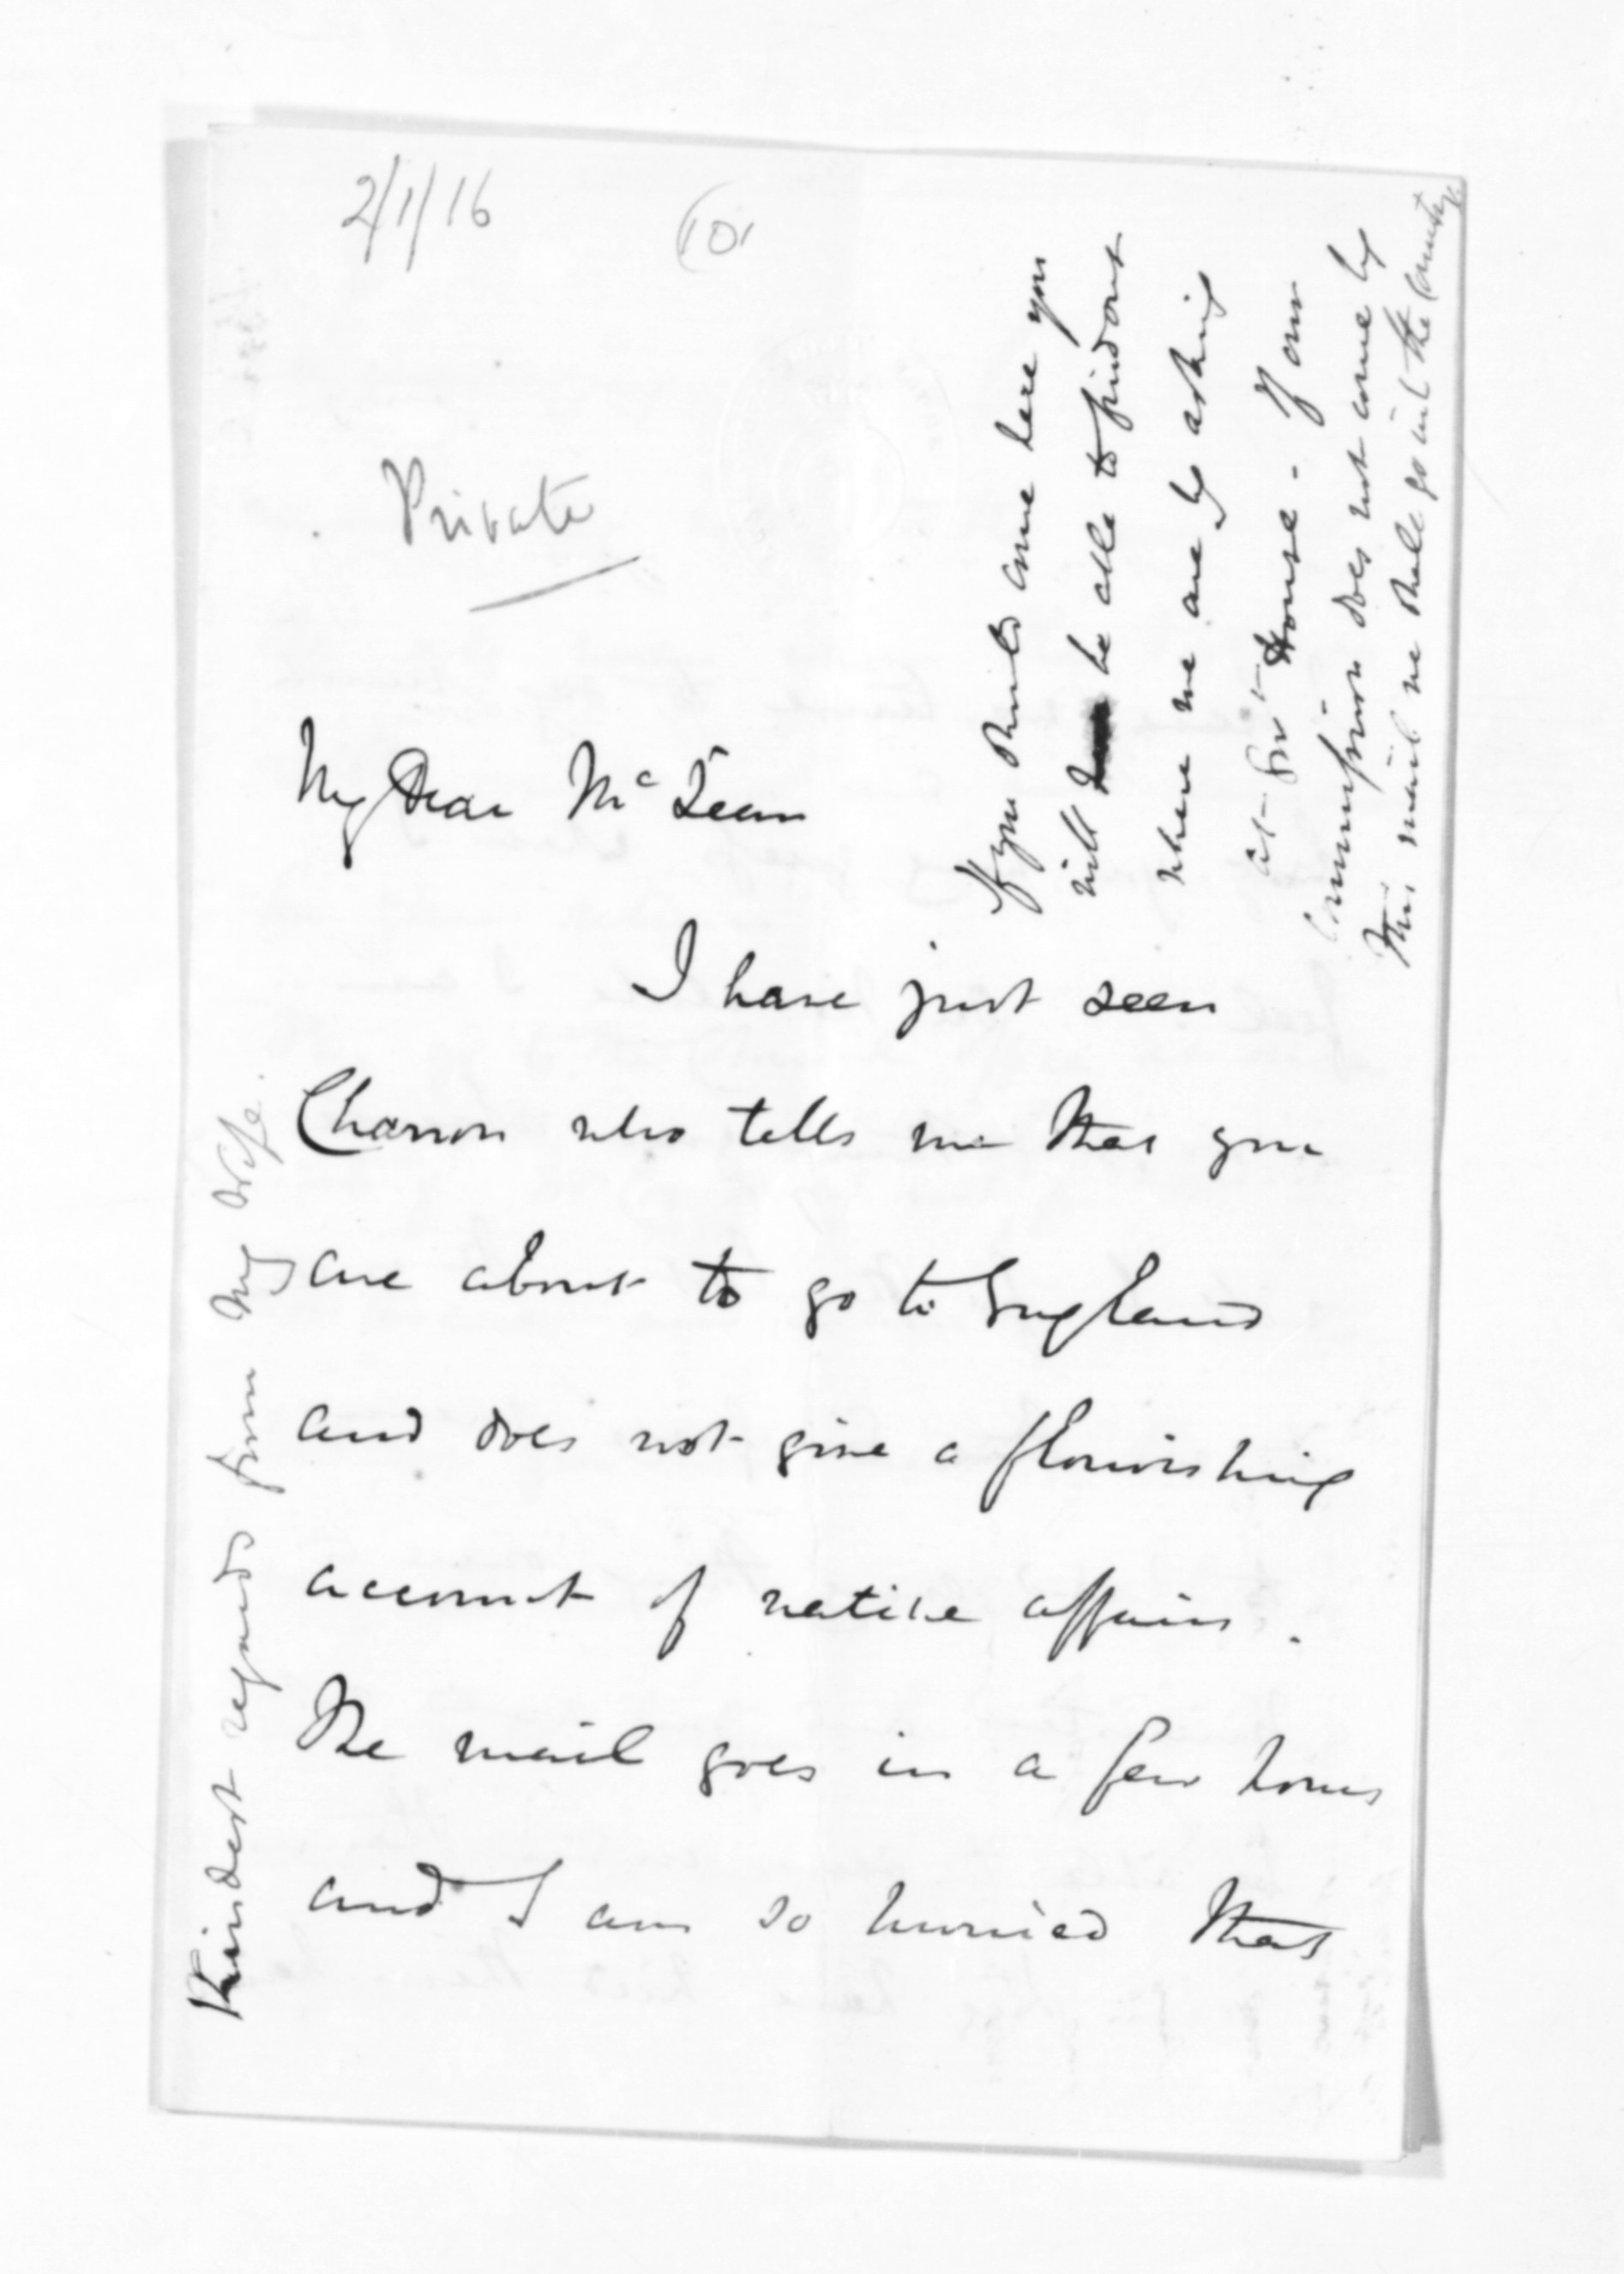 2/1/16
(101
Private
My Dear McLean
I have just seen
Channon who tells me that you
are about to go to England
and does not give a flourishing
account of native affairs.
The mail goes in a few hours
and I am so hurried that
If you should come here you
will be able to find out
where we are by asking
at Govt House - If our
Commission does not come by
this mail we shall go into the Country.
Kindest regards from my Wife.